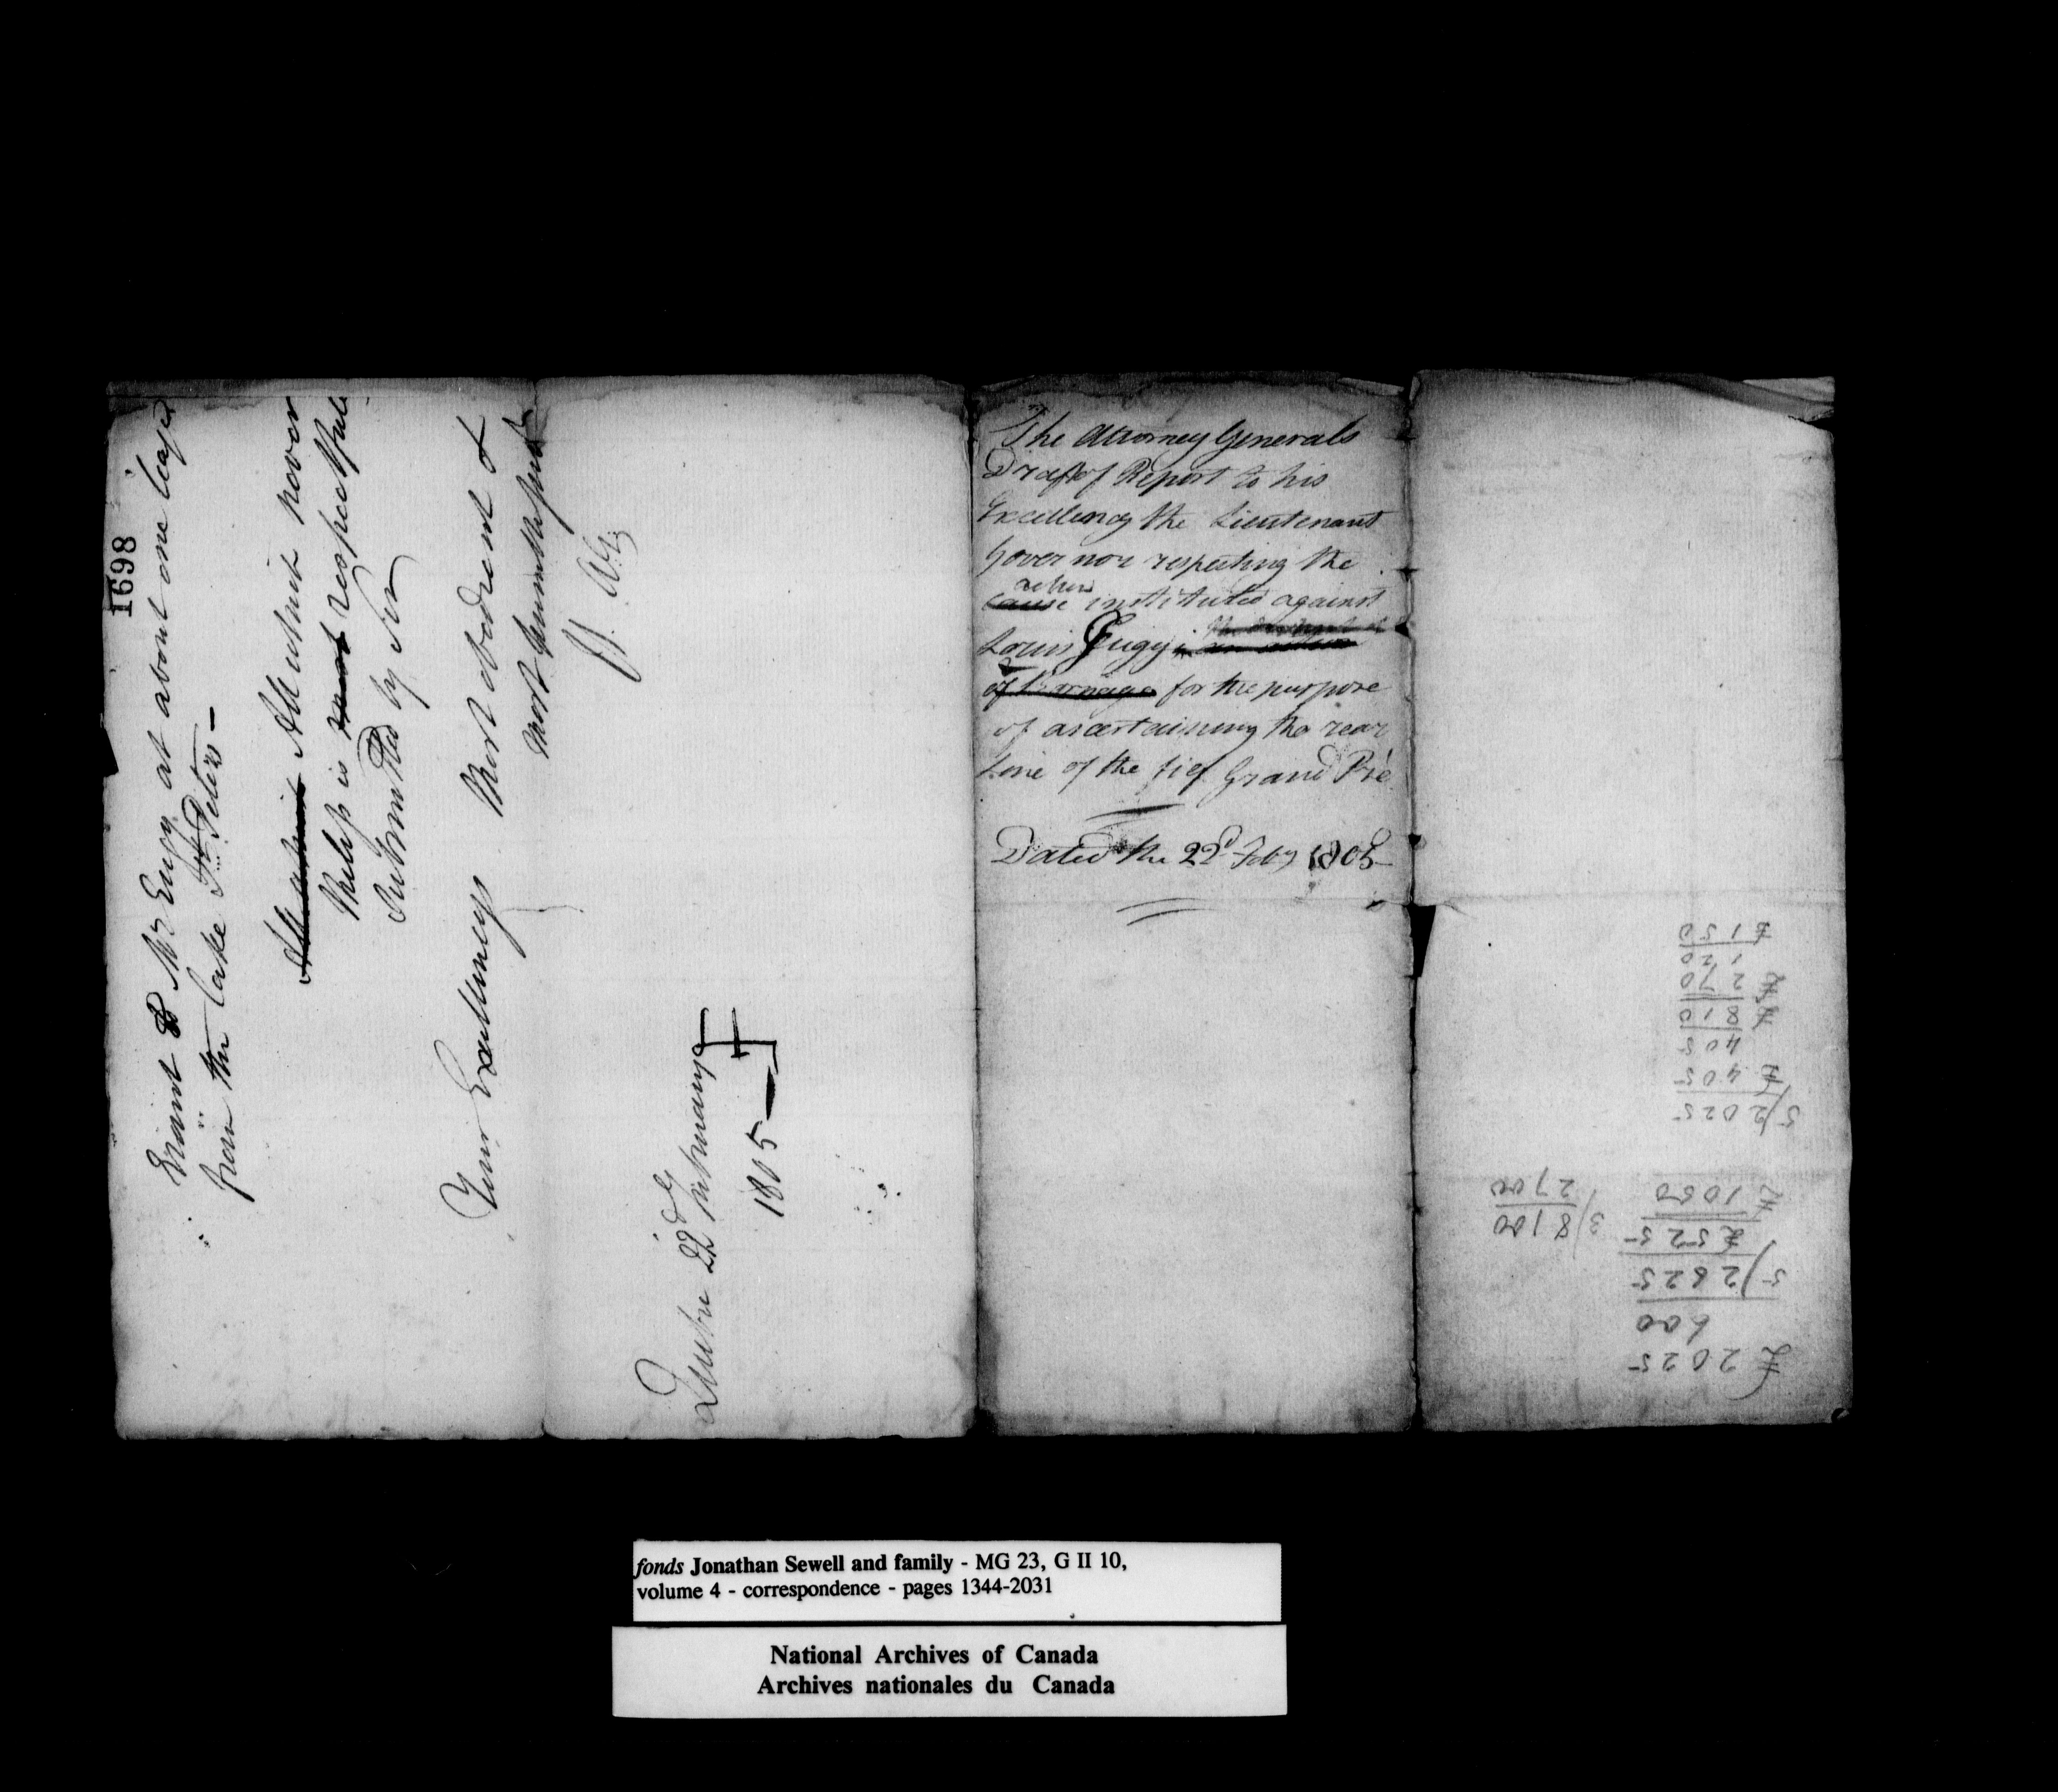 1698
Grant & Mr Gugy at about one league
from the Lake St Peters —
All which however
Must is most respectfully
Submitted by Sir
Your Excellencys Most obedient &
most humble servt
J. S. AG
Quebec 22d February
1805 —
The Attorney Generals
Draft of Report to his
Excellency the Lieutenant
Governor respecting the
action
cause instituted against
Louis Gugy in an action
of Bornage for the purpose
of ascertaining the rear
Line of the fief Grand Pré
Dated the 22d Feby 1805
£ 2025
600
5/2625
£525
1050
3/8100
2700
5/2025
£ 405
405
£ 810
£ 270
120
£ 150
fonds Jonathan Sewell and family - MG 23, G II 10,
volume 4 - correspondence - pages 1344-2031
National Archives of Canada
Archives nationales du Canada